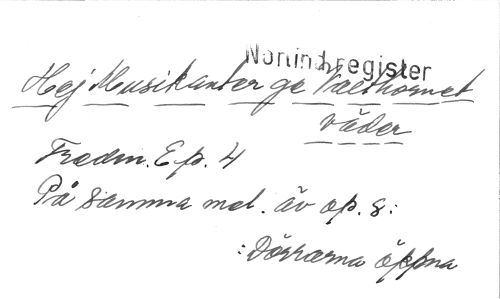 Norlind register
Hej Musikanter ge Valthornet
väder
Fredm. Ep. 4
På samma mel. äv op. 8:
:Dörrarna öppna